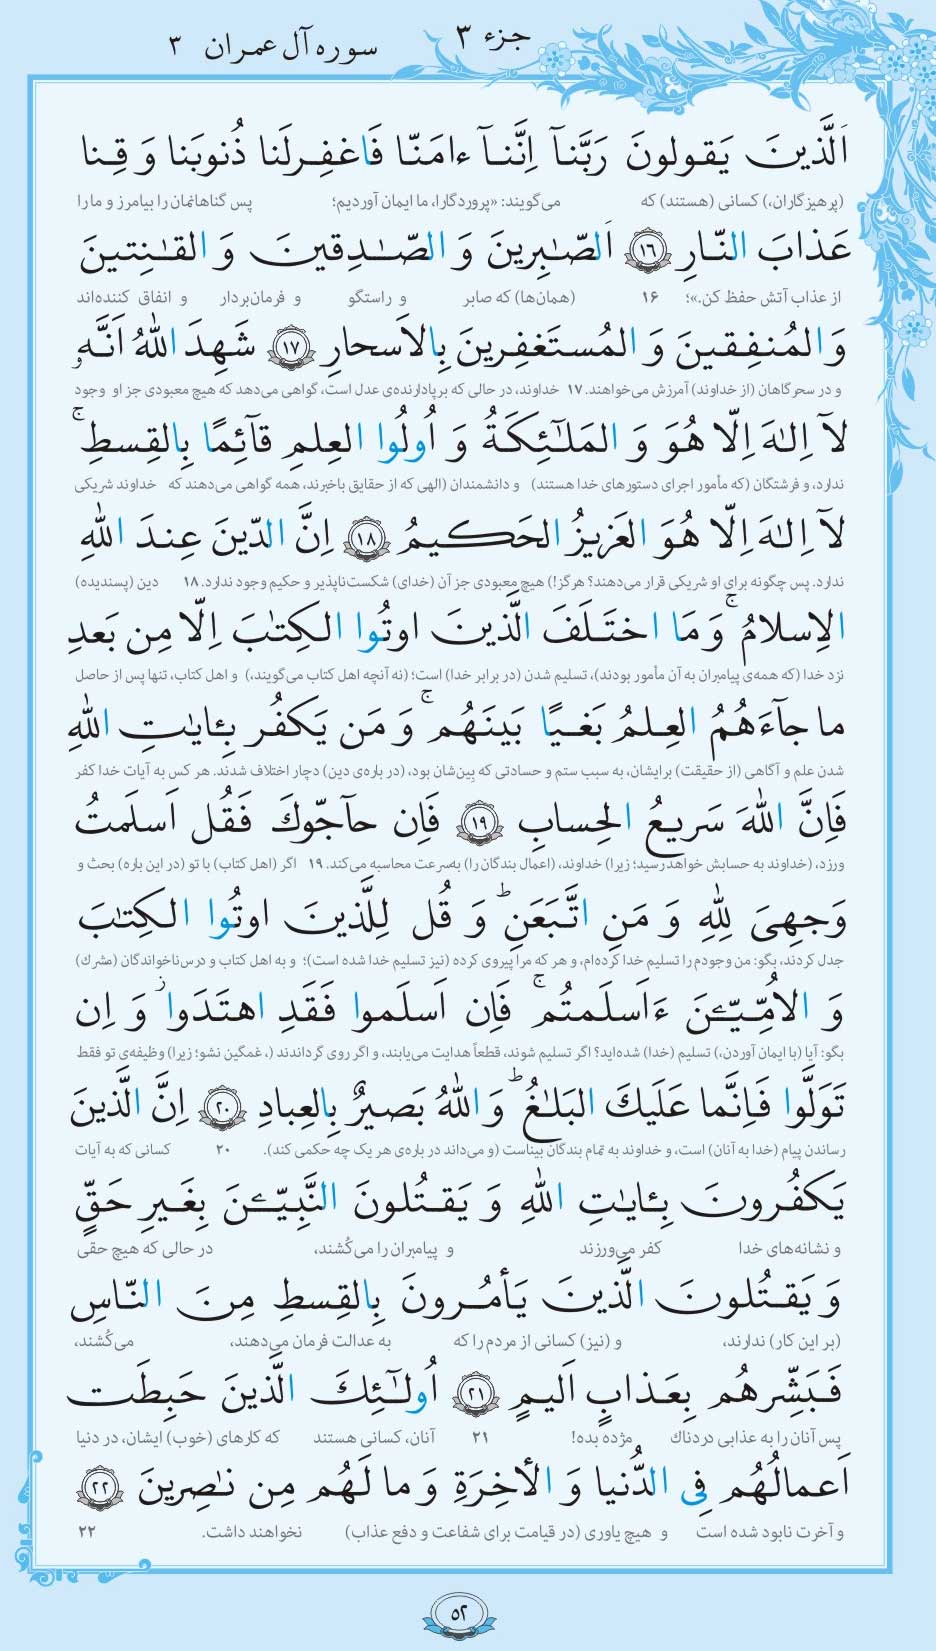 جزء ۳
سوره آل عمران ۳
اَلَّذينَ يَقولونَ رَبَّنآ اِنَّنآ ءامَنّا فَاغفِرلَنا ذُنوبَنا وَ قِنا
(پرهیزگاران،) کسانی (هستند) که می‌گویند: «پروردگارا، ما ایمان آوردیم؛ پس گناهانمان را بیامرز و ما را
عَذابَ النّارِ ۱۶ اَلصّـٰبِرينَ وَ الصّـٰدِقينَ وَ القـٰنِتينَ
از عذاب آتش حفظ کن.»؛ ۱۶ (همان‌ها) که صابر و راستگو و فرمان‌بردار و انفاق کننده‌اند
وَ المُنفِقينَ وَ المُستَغفِرينَ بِالاَسحارِ ۱۷ شَهِدَ اللّٰهُ اَنَّهو
و در سحرگاهان (از خداوند) آمرزش می‌خواهند. ۱۷ خداوند، در حالی که برپادارنده‌ی عدل است، گواهی می‌دهد که هیچ معبودی جز او وجود
لآ اِلـٰهَ اِلّا هُوَ وَ المَلـٰٓئِكَةُ وَ اُولُوا العِلمِ قآئِمًا بِالقِسطِ ۚ
ندارد، و فرشتگان (که مأمور اجرای دستورهای خدا هستند) و دانشمندان (الهی که از حقایق باخبرند، همه گواهی می‌دهند که خداوند شریکی
لآ اِلـٰهَ اِلّا هُوَ العَزيزُ الحَكيمُ ۱۸ اِنَّ الدّينَ عِندَ اللّٰهِ
ندارد. پس چگونه برای او شریکی قرار می‌دهند؟ هرگز!) هیچ معبودی جز آن (خدای) شکست‌ناپذیر و حکیم وجود ندارد. ۱۸ دین (پسندیده)
الاِسلامُ ۚ وَ مَا اختَلَفَ الَّذينَ اوتُوا الكِتـٰبَ اِلّا مِن بَعدِ
نزد خدا (که همه‌ی پیامبران به آن مأمور بودند)، تسلیم شدن (در برابر خدا) است؛ (نه آنچه اهل کتاب می‌گویند،) و اهل کتاب، تنها پس از حاصل
ما جآءَهُمُ العِلمُ بَغيًا بَينَهُم ۚ وَ مَن يَكفُر بِـٔايـٰتِ اللّٰهِ
شدن علم و آگاهی (از حقیقت) برایشان، به سبب ستم و حسادتی که بین‌شان بود، (در باره‌ی دین) دچار اختلاف شدند. هر کس به آیات خدا کفر
فَاِنَّ اللّٰهَ سَريعُ الحِسابِ ۱۹ فَاِن حآجّوكَ فَقُل اَسلَمتُ
ورزد، (خداوند به حسابش خواهد رسید؛ زیرا) خداوند، (اعمال بندگان را) به‌سرعت محاسبه می‌کند. ۱۹ اگر (اهل کتاب) با تو (در این باره) بحث و
وَجهِيَ لِلّٰهِ وَ مَنِ اتَّبَعَنِ ۗ وَ قُل لِلَّذينَ اوتُوا الكِتـٰبَ
جدل کردند، بگو: من وجودم را تسلیم خدا کرده‌ام، و هر که مرا پیروی کرده (نیز تسلیم خدا شده است)؛ و به اهل کتاب و درس‌ناخواندگان (مشرک)
وَ الاُمّيّـۧنَ ءَاَسلَمتُم ۚ فَاِن اَسلَموا فَقَدِ اهتَدَوا ز وَ اِن
بگو: آیا (با ایمان آوردن،) تسلیم (خدا) شده‌اید؟ اگر تسلیم شوند، قطعاً هدایت می‌یابند، و اگر روی گرداندند (، غمگین نشو؛ زیرا) وظیفه‌ی تو فقط
تَوَلَّوا فَاِنَّما عَلَيكَ البَلـٰغُ ۗ وَ اللّٰهُ بَصيرٌ بِالعِبادِ ۲۰ اِنَّ الَّذينَ
رساندن پیام (خدا به آنان) است، و خداوند به تمام بندگان بیناست (و می‌داند در باره‌ی هر یک چه حکمی کند). ۲۰ کسانی که به آیات
يَكفُرونَ بِـٔايـٰتِ اللّٰهِ وَ يَقتُلونَ النَّبِيّـۧنَ بِغَيرِ حَقٍّ
و نشانه‌های خدا کفر می‌ورزند و پیامبران را می‌کُشند، در حالی که هیچ حقی
وَ يَقتُلونَ الَّذينَ يَأمُرونَ بِالقِسطِ مِنَ النّاسِ
(بر این کار) ندارند، و (نیز) کسانی از مردم را که به عدالت فرمان می‌دهند، می‌کُشند،
فَبَشِّرهُم بِعَذابٍ اَليمٍ ۲۱ اُولـٰٓئِكَ الَّذينَ حَبِطَت
پس آنان را به عذابی دردناک مژده بده! ۲۱ آنان، کسانی هستند که کارهای (خوب) ایشان، در دنیا
اَعمالُهُم فِي الدُّنيا وَ الأخِرَةِ وَ ما لَهُم مِن نـٰصِرينَ ۲۲
و آخرت نابود شده است و هیچ یاوری (در قیامت برای شفاعت و دفع عذاب) نخواهند داشت. ۲۲
۵۲